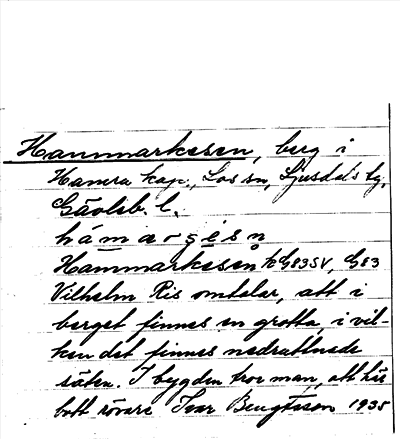 Hammarkesen, berg i
Hamra kap., Los sn, Ljusdals tg,
Gävleb. l.
Hammarkesen KG83SV, G83
Vilhelm Ris omtalar, att i
berget finnes en grotta, i vil-
ken det finnes nedruttnade
säten. I bygden tror man, att här
bott rövare Ivar Bengtsson 1935